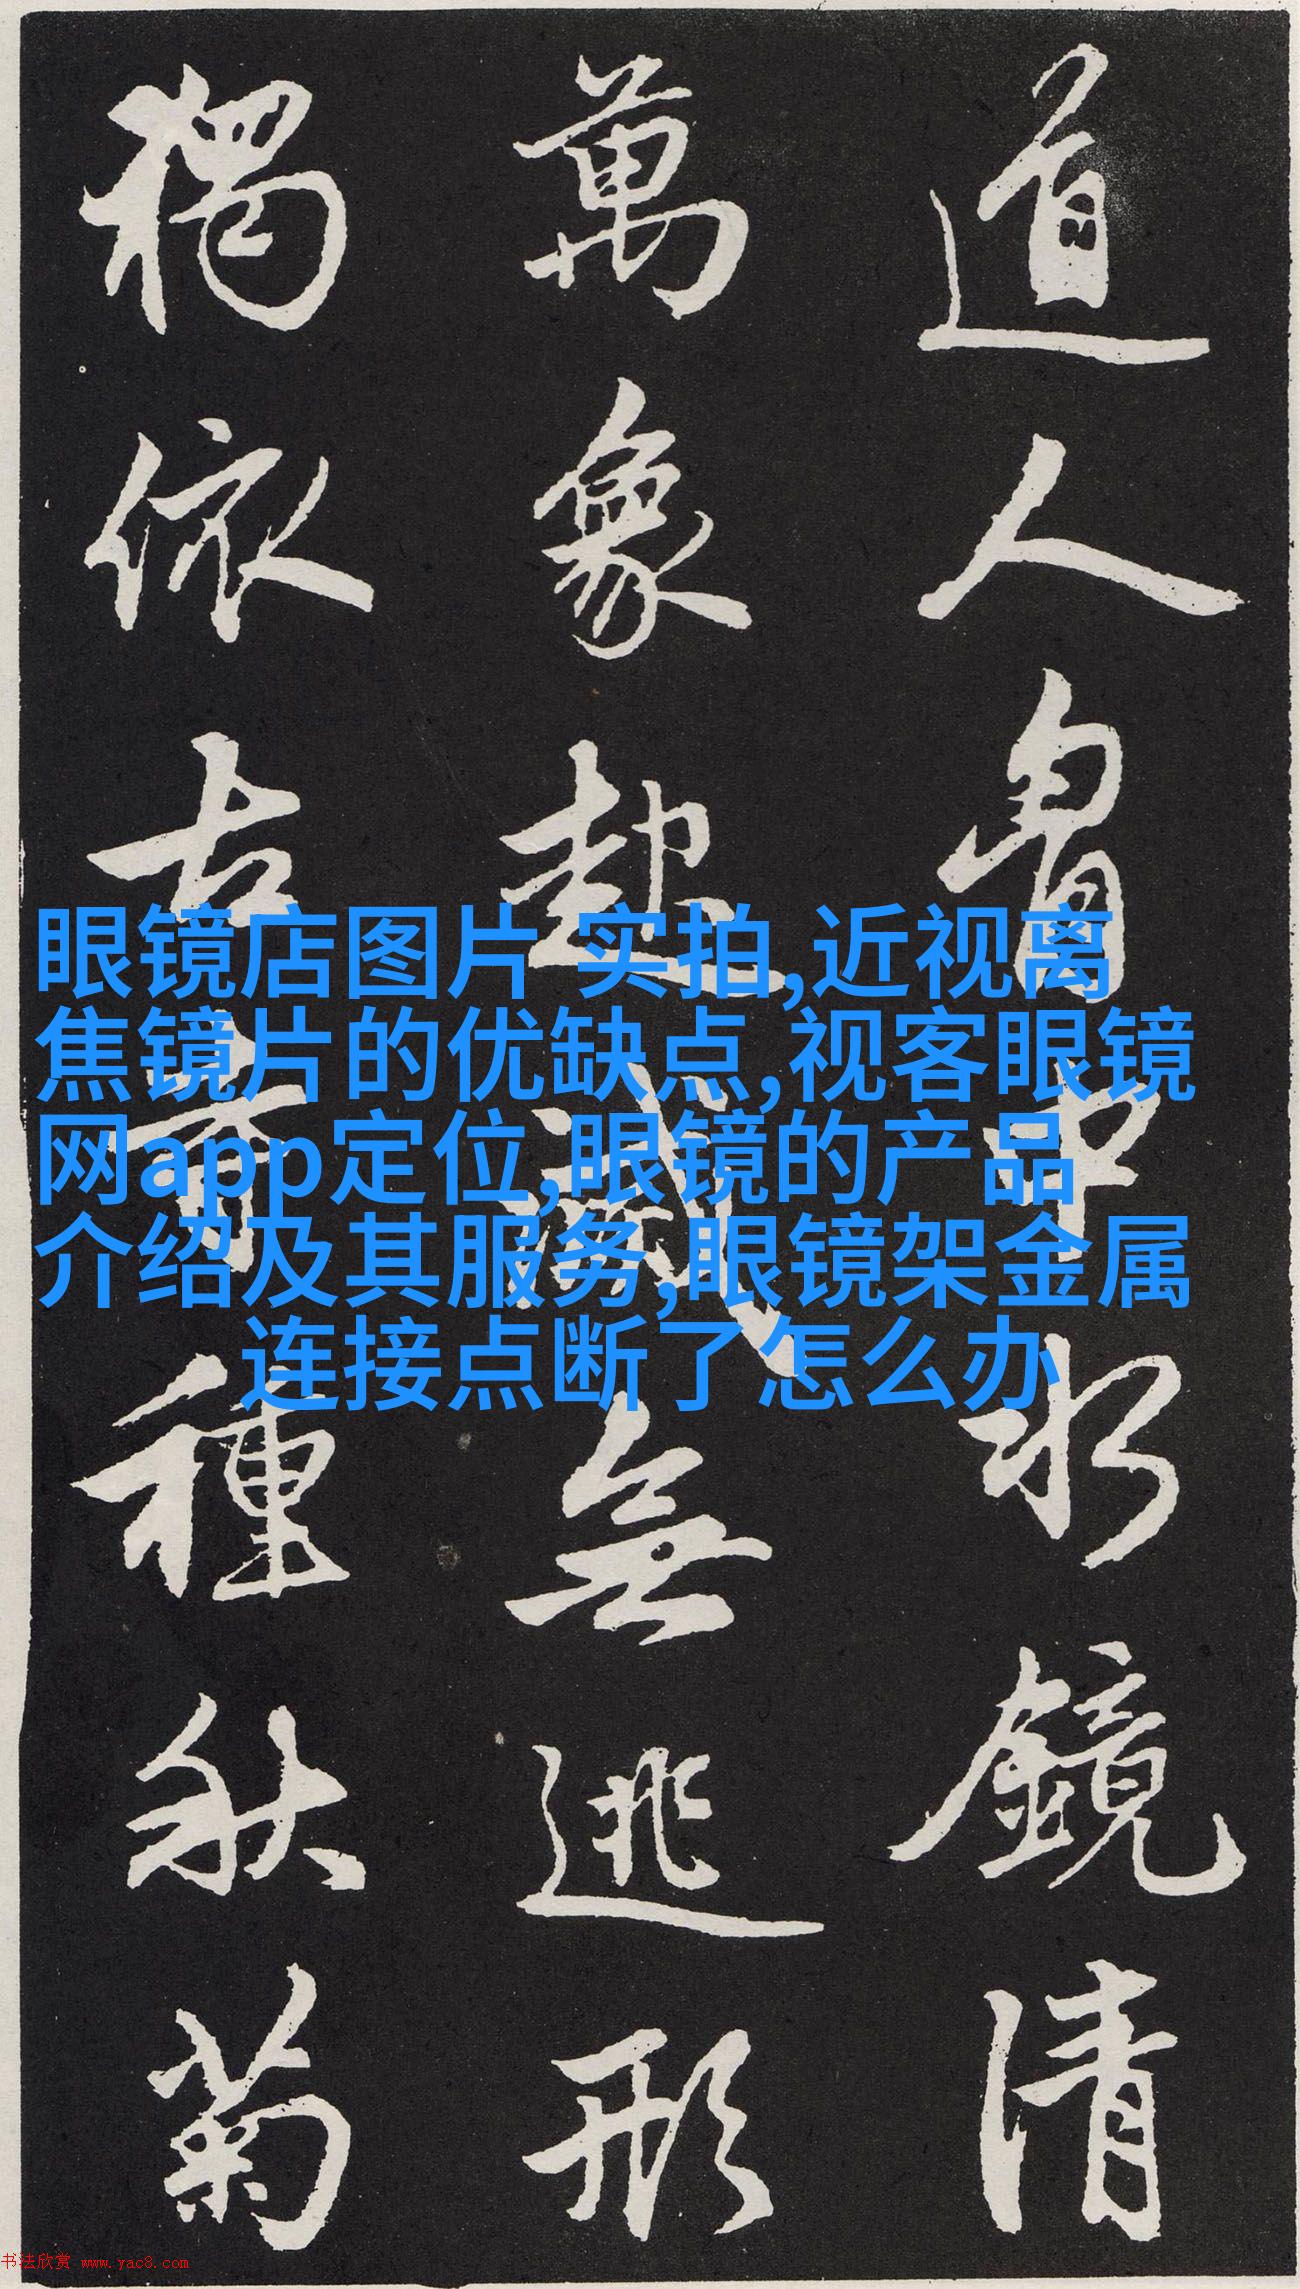 道人胷中水鏡清
萬象起滅無逃形
獨依古寺種秋菊
眼镜店图片 实拍,近视离
焦镜片的优缺点,视客眼镜
网app定位,眼镜的产品
介绍及其服务,眼镜架金属
连接点断了怎么办
书法欣赏 www.yac8.com